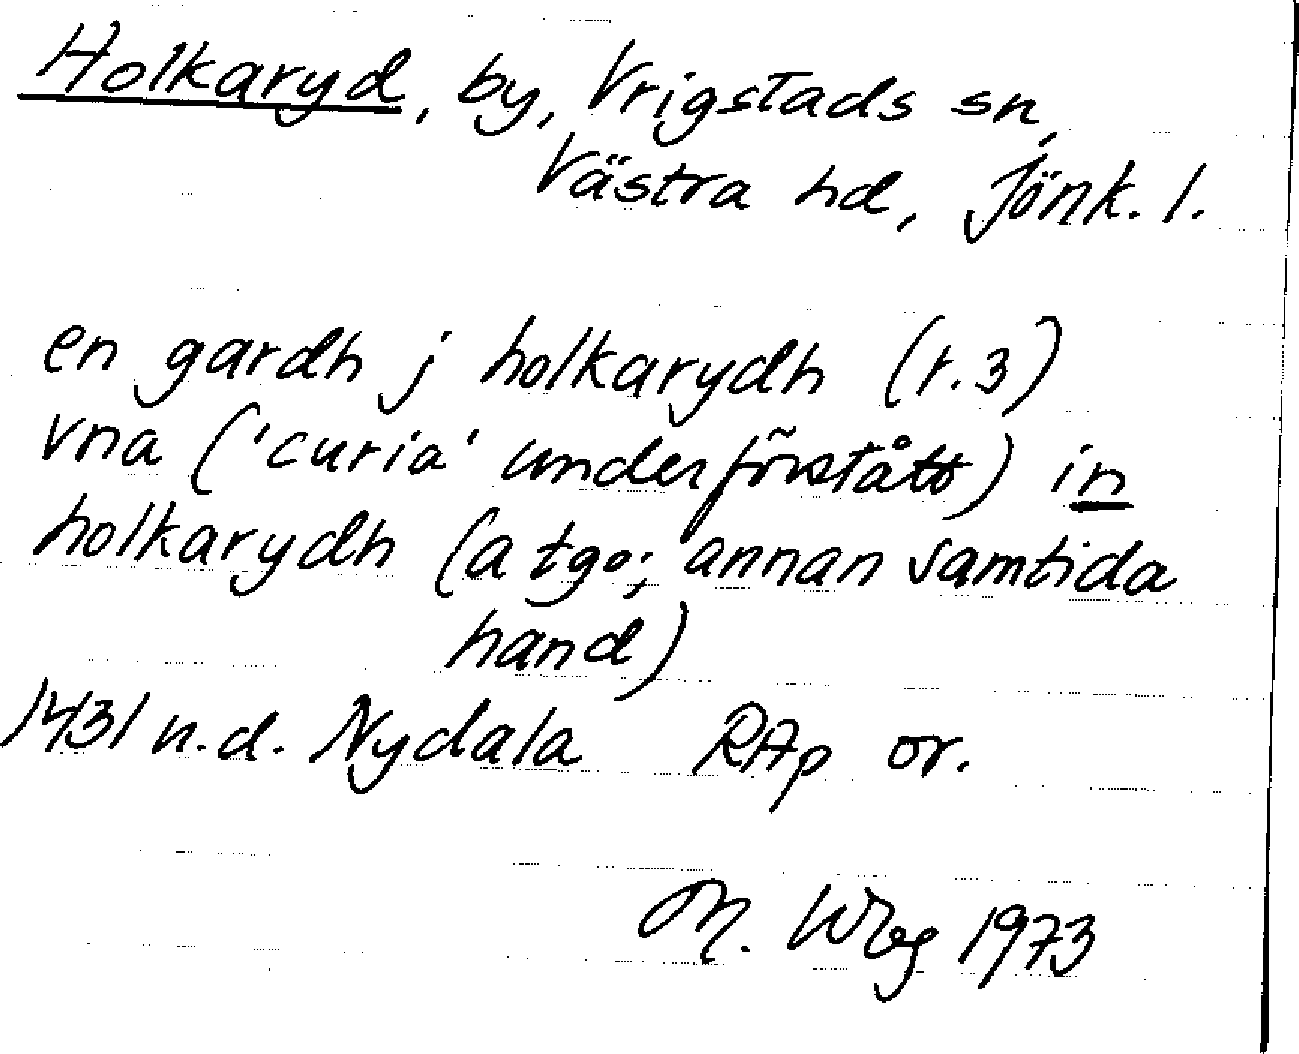 Holkaryd, by, Vrigstads sn,
Västra hd, Jönk. l.
en gardh j holkarydh (r. 3)
vna ('curia' underförstått) in
holkarydh (a tgo; annan samtida
hand)
1431 n.d. Nydala RAp or.
M. Wbg 1973